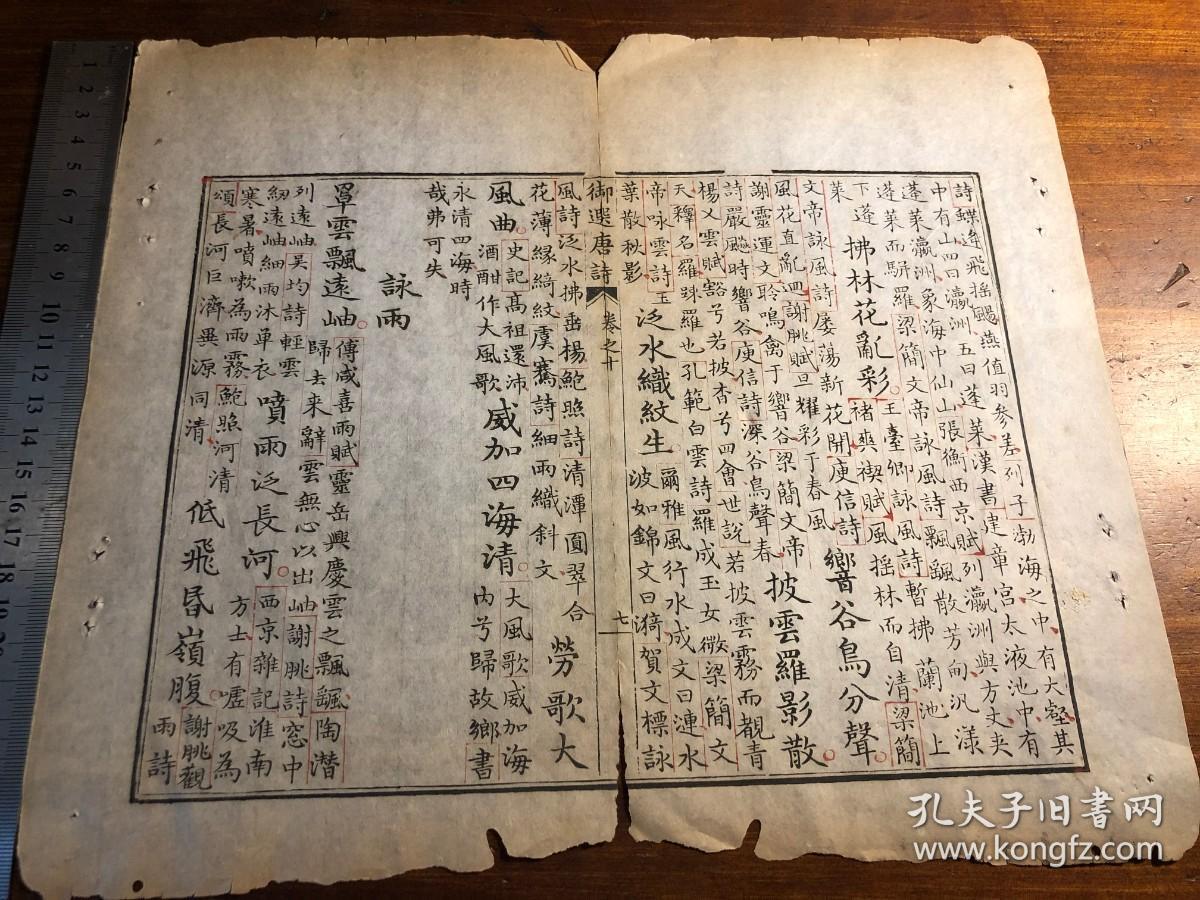 詩蝶逢飛搖颺燕值羽參差列子渤海之中有大壑其
中有山四曰瀛洲五曰蓬萊漢書建章宮太液池中有
蓬萊瀛洲象海中仙山張衡西京賦列瀛洲與方丈夾
蓬萊而駢羅梁簡文帝詠風詩飄颻散芳勢汎漾
下蓬萊
拂林花亂彩
王臺卿詠風詩暫拂蘭池上
褚爽禊賦風搖林而自清梁簡
文帝詠風詩屡蕩新花開庾信詩
風花直亂回謝朓賦旦耀彩于春風
響谷鳥分聲
謝靈運文聆鳴禽于響谷梁簡文帝
詩嚴飈時響谷庾信詩深谷鳥聲春
披雲羅影散
楊乂雲賦豁兮若披杳兮四會世說若披雲霧而覩青
天釋名羅踈羅也孔範白雲詩羅成玉女微梁簡文
帝咏雲詩玉
葉散秋影
泛水織紋生
爾雅風行水成文曰漣水
波如錦文曰漪賀文標詠
御選唐詩
卷之十
七
風詩泛水拂垂楊鮑照詩清潭圓翠合
花薄緣綺紋虞騫詩細雨織斜文
勞歌大
風曲
史記高祖還沛
酒酣作大風歌
威加四海清
大風歌威加海
內兮歸故鄉書
永清四海時
哉弗可失
詠雨
罩雲飄遠岫
傅咸喜雨賦靈岳興慶雲之飄颻陶潛
歸去來辭雲無心以出岫謝朓詩窓中
列遠岫吴均詩輕雲
紉遠岫細雨沐單衣
噴雨泛長河
西京雜記淮南
方士有噓吸為
寒暑噴嗽為雨霧鮑照河清
頌長河巨濟異源同清
低飛昏嶺腹
謝朓觀
雨詩
孔夫子旧书网
www.kongfz.com